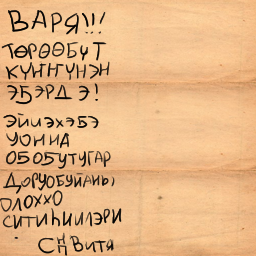 ВАРЯ!!!
ТӨРӨӨБҮТ
КҮҤҤҮНЭН
ЭҔЭРДЭ!
ЭЙИЭХЭБЭ
УОННА
ОБОБУТУГАР
ДОРУОБУЙАНЫ,
ОЛОХХО
СИТИҺИИЛЭРИ
Витя